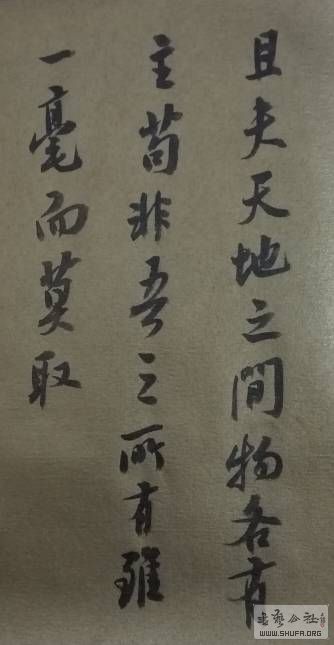 且夫天地之間物各有
主苟非吾之所有雖
一毫而莫取
書藝公社
WWW.SHUFA.ORG